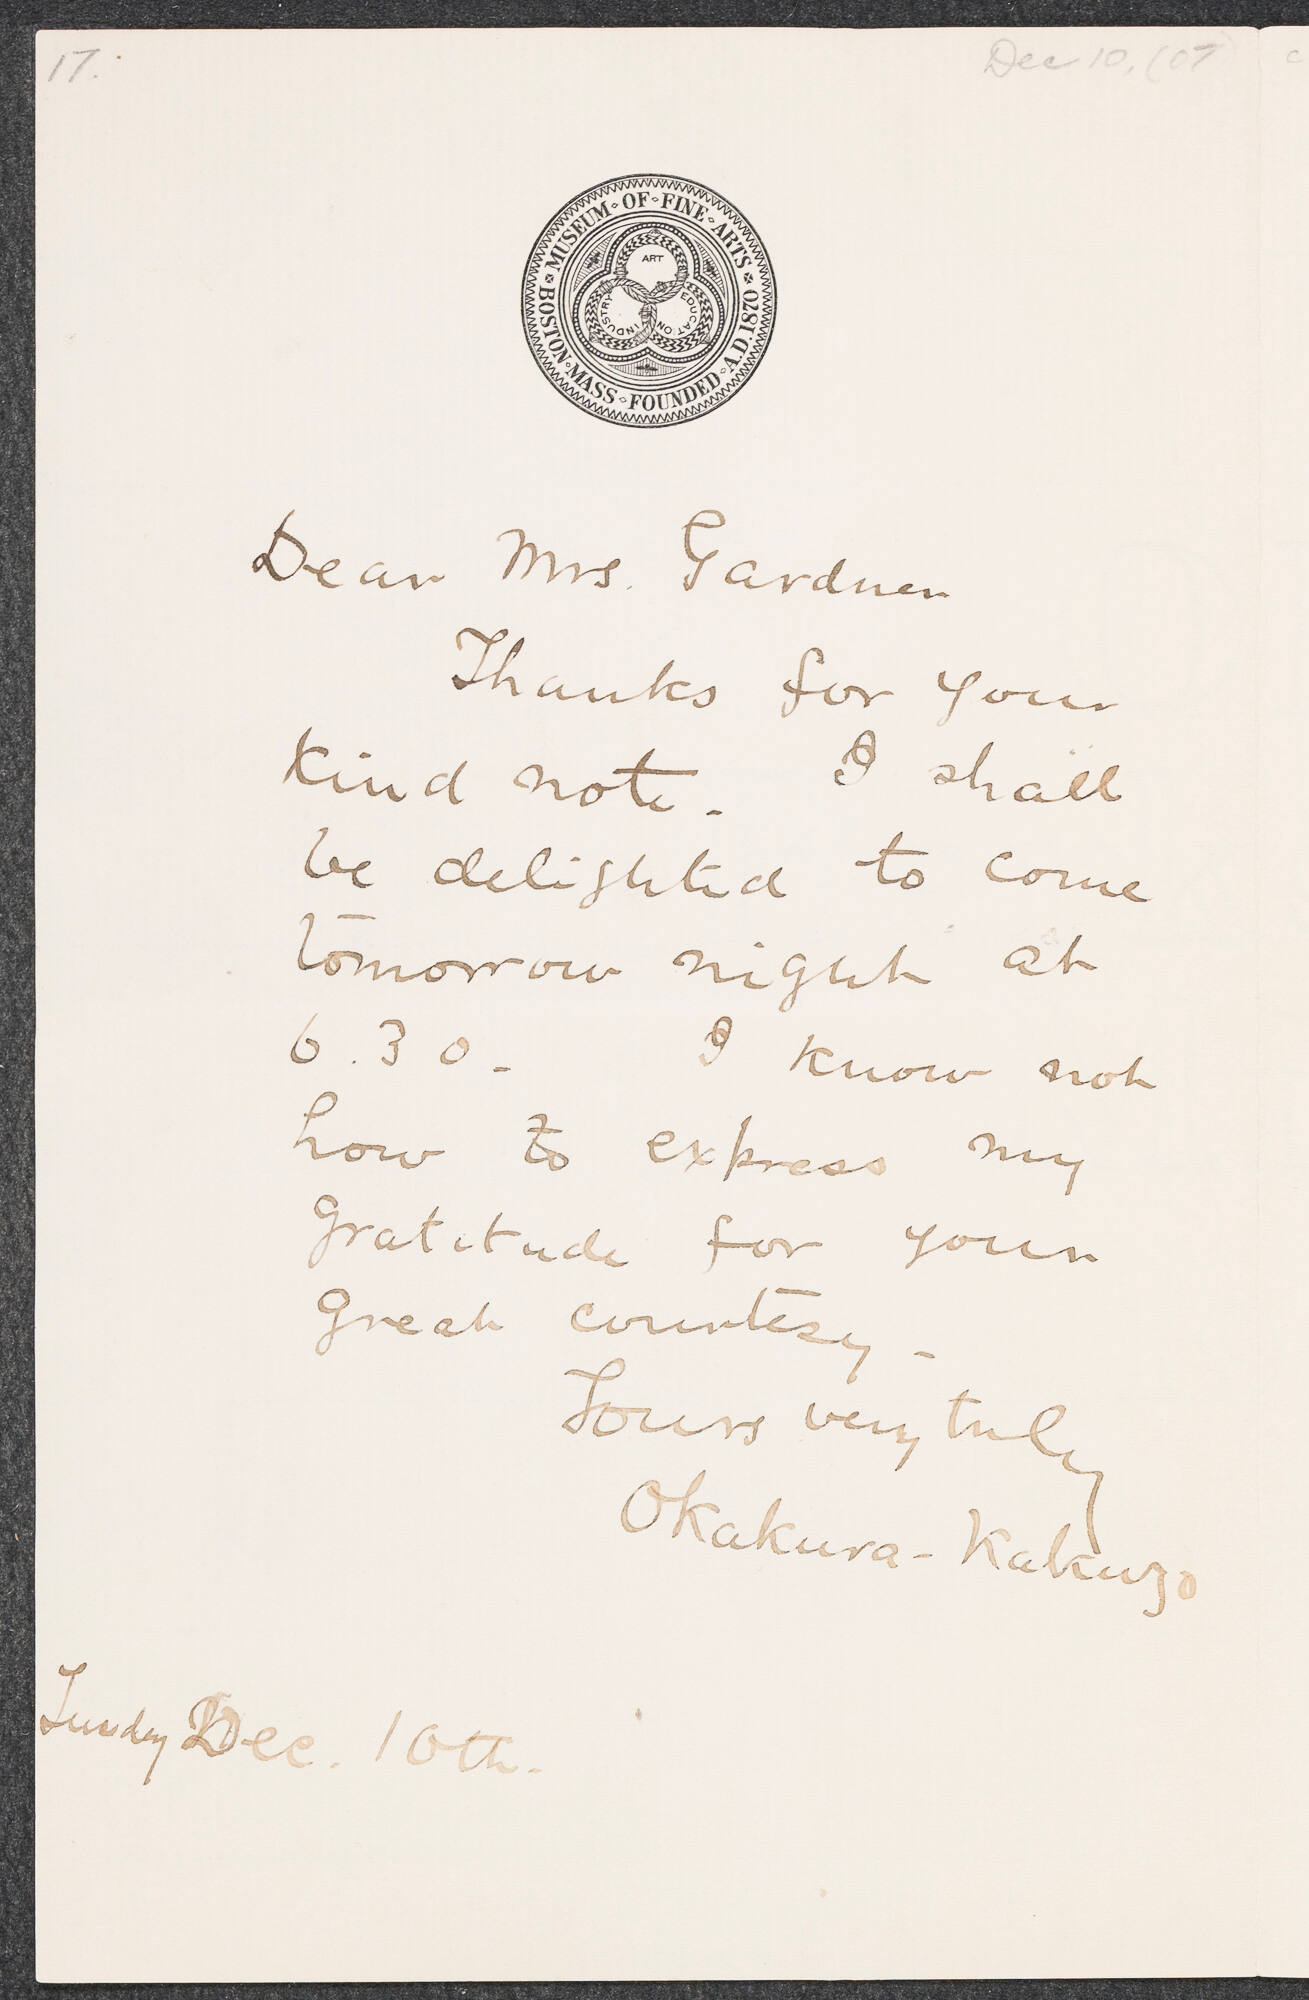 17.
Dec 10, (07)
MUSEUM OF FINE ARTS
BOSTON MASS FOUNDED A.D. 1870
ART
INDUSTRY
EDUCATION
Dear Mrs. Gardner
Thanks for your
kind note. I shall
be delighted to come
tomorrow night at
6.30. I know not
how to express my
gratitude for your
great courtesy.
Yours very truly
Okakura-Kakuzo
Dec. 10th.